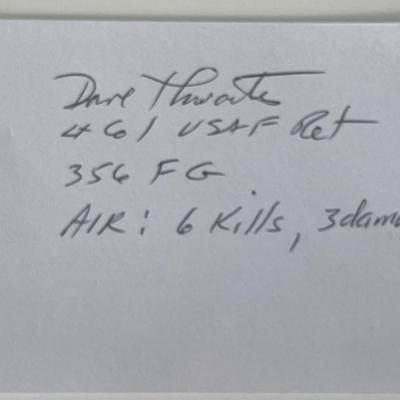 Dave Thwaites
Lt Col USAF Ret
356 FG
AIR: 6 Kills, 3 dam